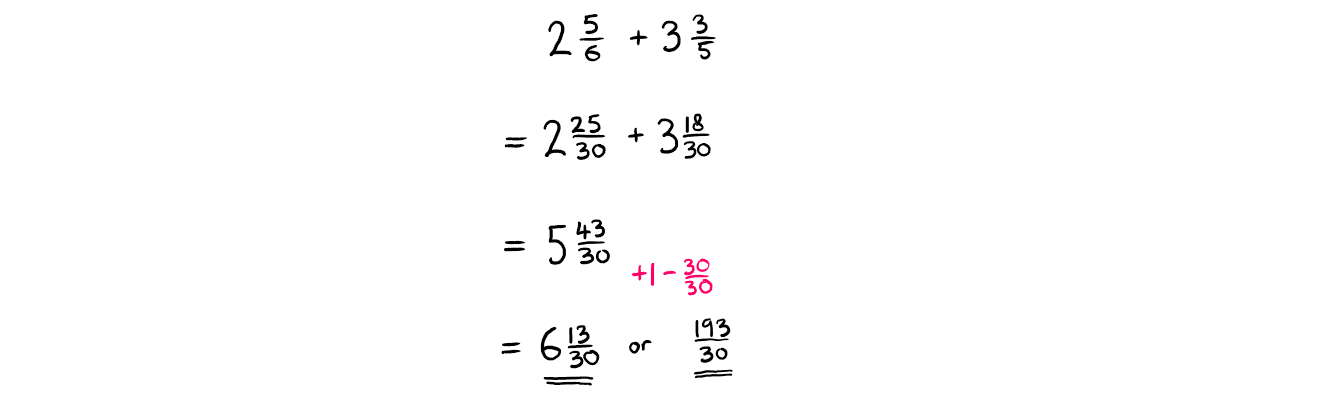 2 5/6 + 3 3/5
= 2 25/30 + 3 18/30
= 5 43/30
+1 - 30/30
= 6 13/30 or 193/30